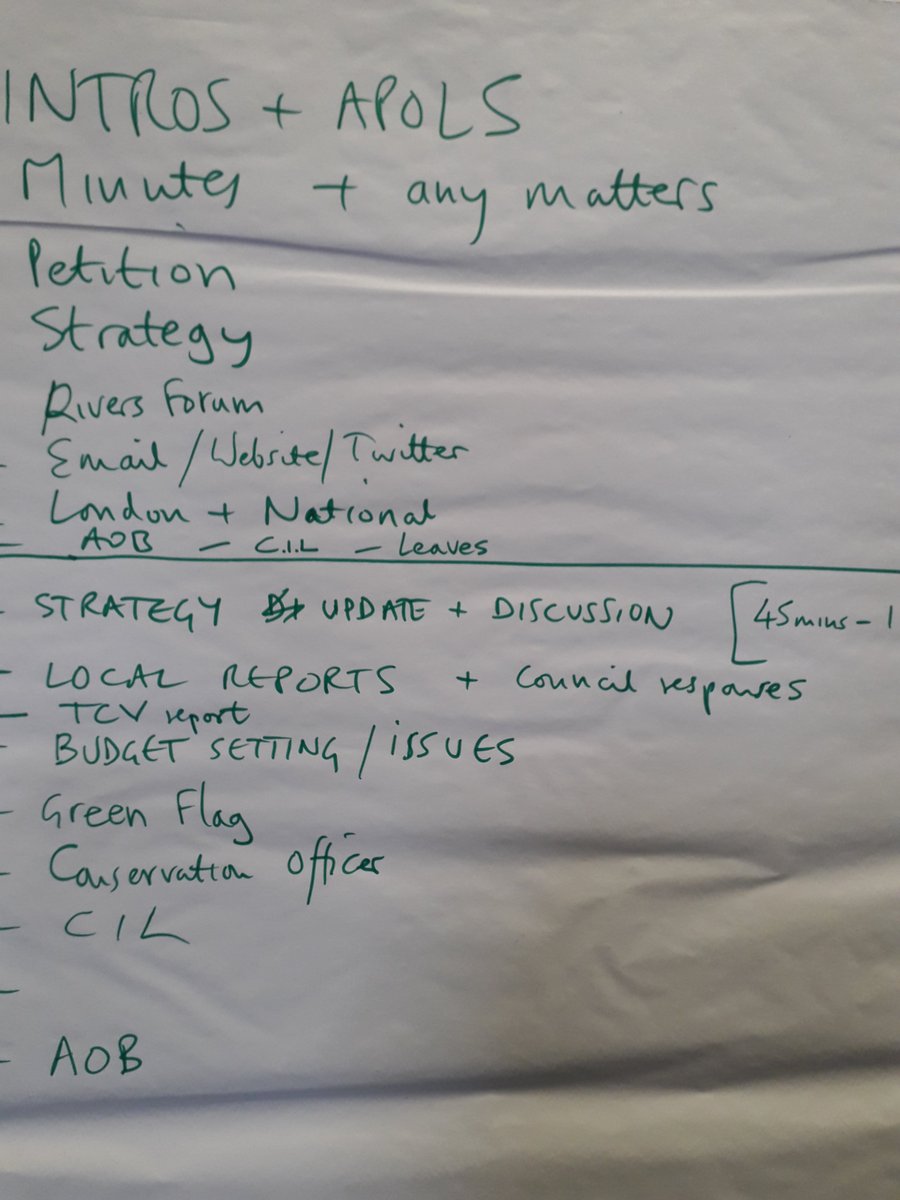 INTROS + APOLS
Minutes + any matters
Petition
Strategy
Rivers Forum
- Email / Website / Twitter
- London + National
- AOB - C.I.L - Leaves
- STRATEGY UPDATE + DISCUSSION [45 mins - 1
- LOCAL REPORTS + Council responses
- TCV report
- BUDGET SETTING / ISSUES
- Green Flag
- Conservation Officer
- CIL
-
- AOB